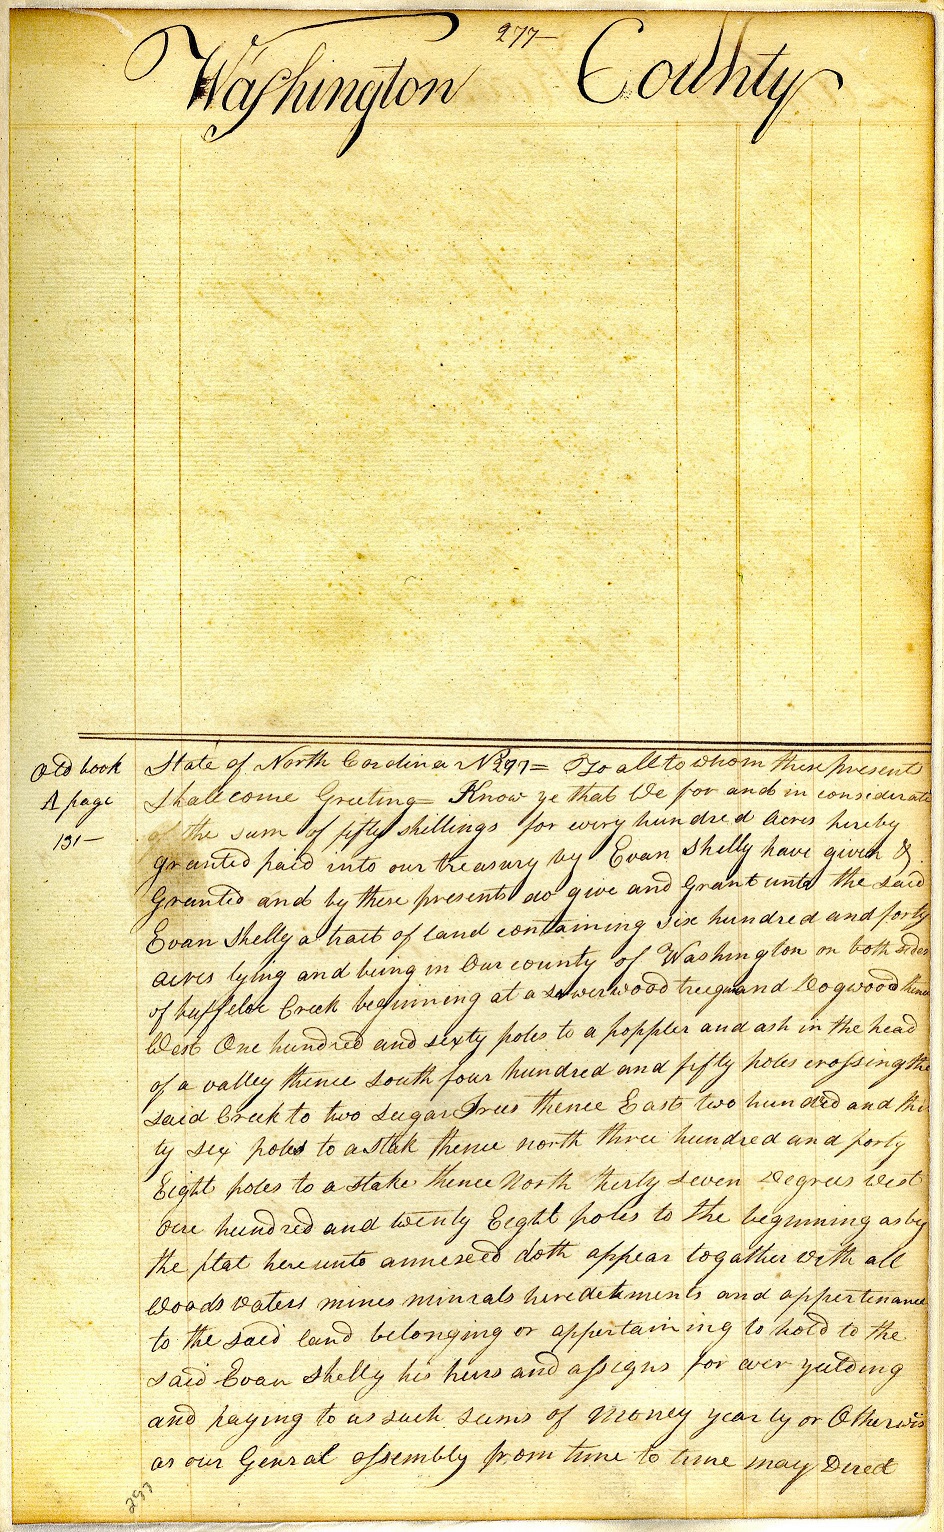 277—
Washington County
Old book
A page
131—
State of North Carolina No 277= To all to whom these presents
Shall come Greeting= Know ye that We for and in considerati
of the sum of fifty shillings for every hundred acres hereby
granted paid into our treasury by Evan Shelly have given &
Granted and by these presents do give and Grant unto the said
Evan Shelly a tract of land containing Six hundred and forty
acres lying and being in Our county of Washington on both sides
of buffeloe Creek beginning at a sowerwood tree and Dogwood thence
West One hundred and sixty poles to a poppler and ash in the head
of a valley thence South four hundred and fifty poles crossing the
said Creek to two Sugar Trees thence East two hundred and thir
ty six poles to a stak thence north three hundred and forty
Eight poles to a stake thence North thirty seven Degrees West
one hundred and twenty Eeight poles to the beginning as by
the plat hereunto annexed doth appear togather with all
Woods waters mines minrals heredetements and appertinance
to the said land belonging or appertaining to hold to the
said Evan Shelly his heirs and assigns for ever yeilding
and paying to us such sums of money yearly or Otherwis
as our Genral assembly from time to time may Direct
297